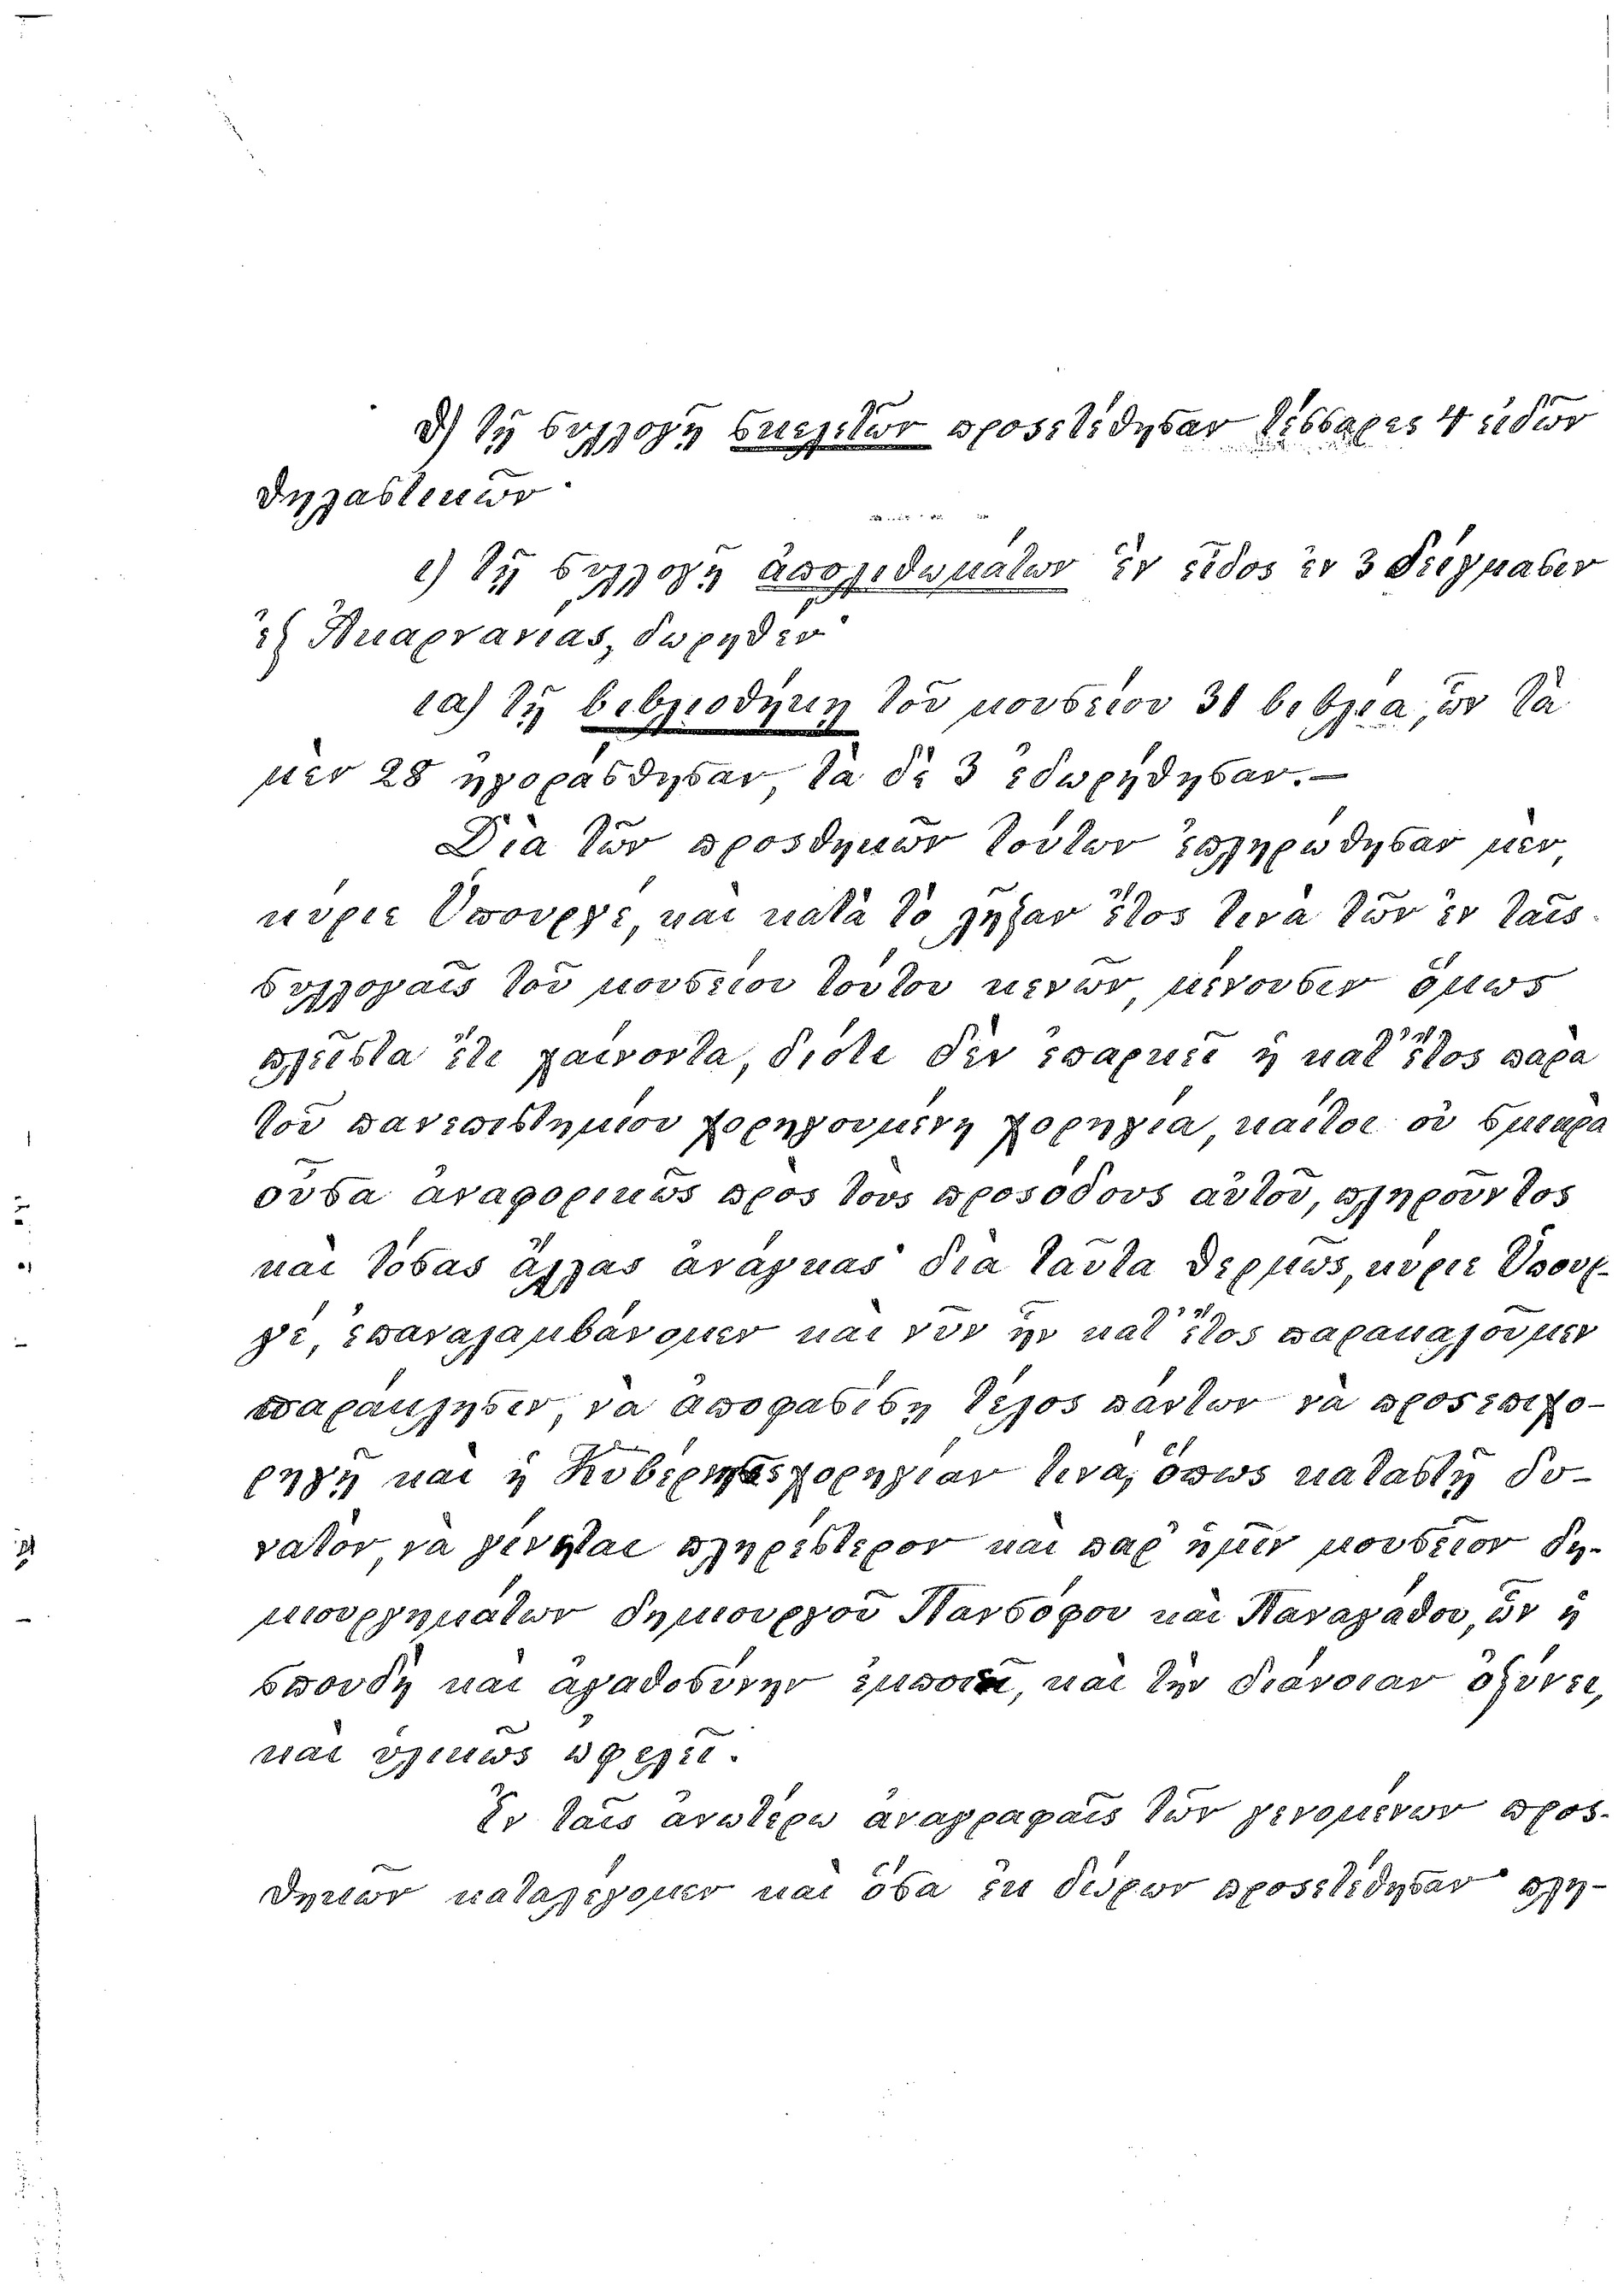 θ) τῇ συλλογῇ σκελετῶν προσετέθησαν τέσσαρες 4 εἰδῶν
θηλαστικῶν·
ι) τῇ συλλογῇ ἀπολιθωμάτων ἓν εἶδος ἐν 3 δείγμασιν
ἐξ Ἀκαρνανίας, δωρηθέν·
ια) τῇ βιβλιοθήκῃ τοῦ μουσείου 31 βιβλία, ὧν τὰ
μὲν 28 ἠγοράσθησαν, τὰ δὲ 3 ἐδωρήθησαν.—
Διὰ τῶν προσθηκῶν τούτων ἐπληρώθησαν μὲν,
κύριε Ὑπουργέ, καὶ κατὰ τὸ λῆξαν ἔτος τινὰ τῶν ἐν ταῖς
συλλογαῖς τοῦ μουσείου τούτου κενῶν, μένουσιν ὅμως
πλεῖστα ἔτι χαίνοντα, διότι δὲν ἐπαρκεῖ ἡ κατ' ἔτος παρὰ
τοῦ πανεπιστημίου χορηγουμένη χορηγία, καίτοι οὐ σμικρὰ
οὖσα ἀναφορικῶς πρὸς τοὺς προσόδους αὐτοῦ, πληροῦντος
καὶ τόσας ἄλλας ἀνάγκας· διὰ ταῦτα θερμῶς, κύριε Ὑπουρ-
γέ, ἐπαναλαμβάνομεν καὶ νῦν ἣν κατ' ἔτος παρακαλοῦμεν
παράκλησιν, να ἀποφασίσῃ τέλος πάντων νὰ προσεπιχο-
ρηγῇ καὶ ἡ Κυβέρνησις χορηγίαν τινά, ὅπως καταστῇ δυ-
νατὸν, νὰ γίνηται πληρέστερον καὶ παρ' ἡμῖν μουσεῖον δη-
μιουργημάτων δημιουργοῦ Πανσόφου καὶ Παναγάθου, ὧν ἡ
σπουδὴ καὶ ἀγαθοσύνην ἐμποιεῖ, καὶ τὴν διάνοιαν ὀξύνει,
καὶ ὑλικῶς ὠφελεῖ.
Ἐν ταῖς ἀνωτέρω ἀναγραφαῖς τῶν γενομένων προσ-
θηκῶν καταλέγομεν καὶ ὅσα ἐκ δώρων προσετέθησαν πλη-